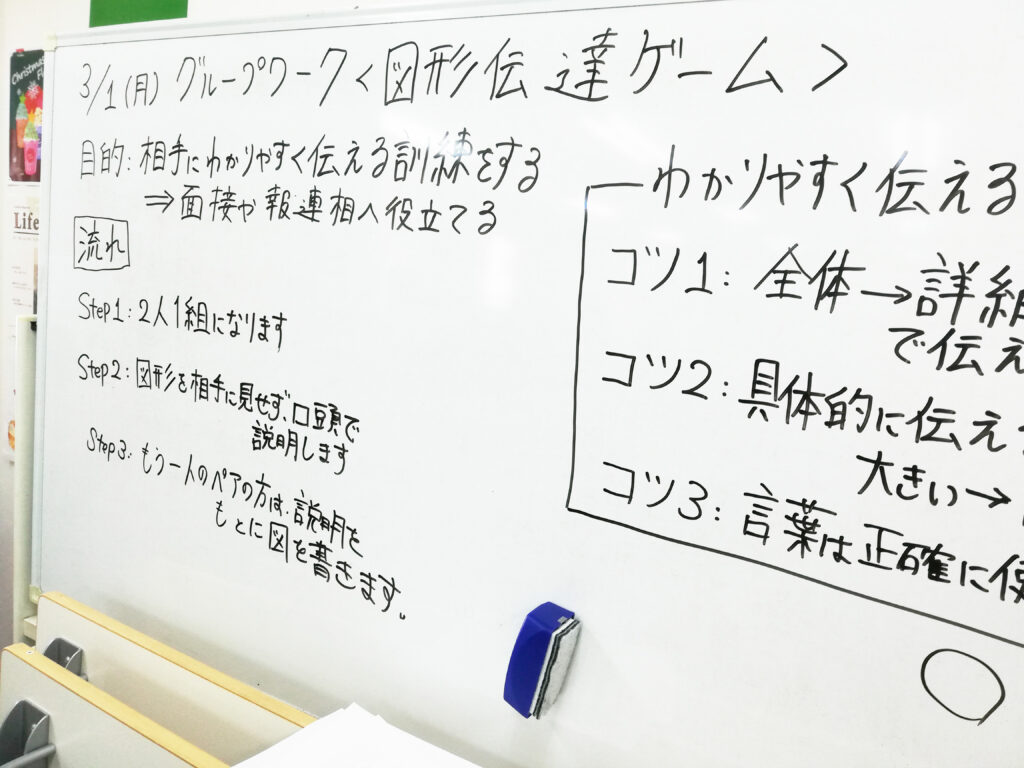 3/1(月) グループワーク<図形伝達ゲーム>
目的: 相手にわかりやすく伝える訓練をする
⇒面接や報連相へ役立てる
流れ
Step1: 2人1組になります
Step2: 図形を相手に見せず、口頭で
説明します
Step3. もう一人のペアの方は、説明を
もとに図を書きます。
わかりやすく伝える
コツ1: 全体→詳細
で伝え
コツ2: 具体的に伝え
大きい→
コツ3: 言葉は正確に使
Christmas
Life